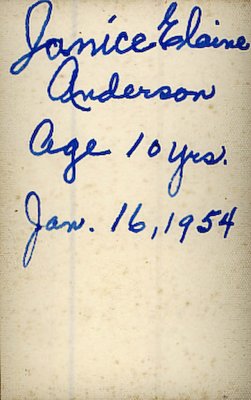 Janice Elaine
Anderson
Age 10 yrs.
Jan. 16, 1954